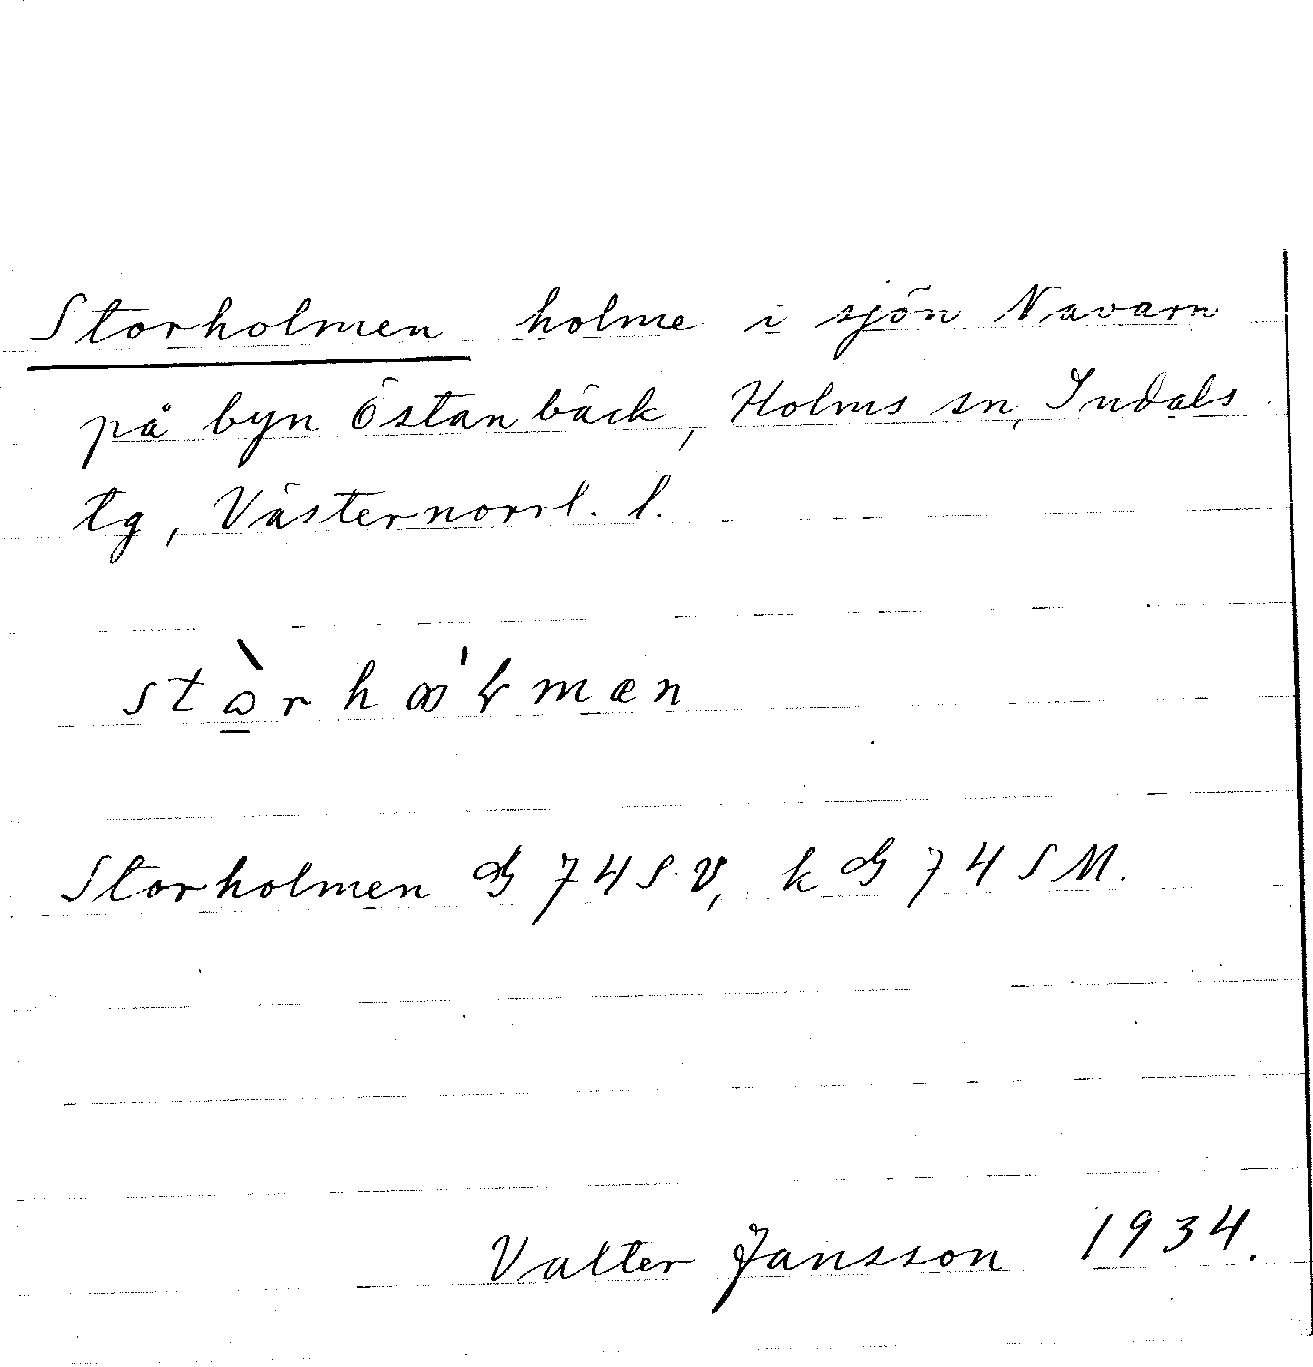 Storholmen holme i sjön Navarn
på byn Östanbäck, Holms sn, Indals
tg, Västernorrl. l.
Storholmen G 74 S.V, k G 74 S M.
Valter Jansson 1934.